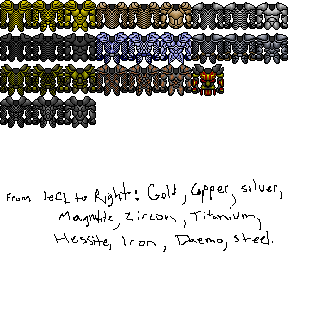 From left to Right: Gold, Copper, silver,
Magnetite, Zircon, Titanium,
Hessite, Iron, Daemo, steel.